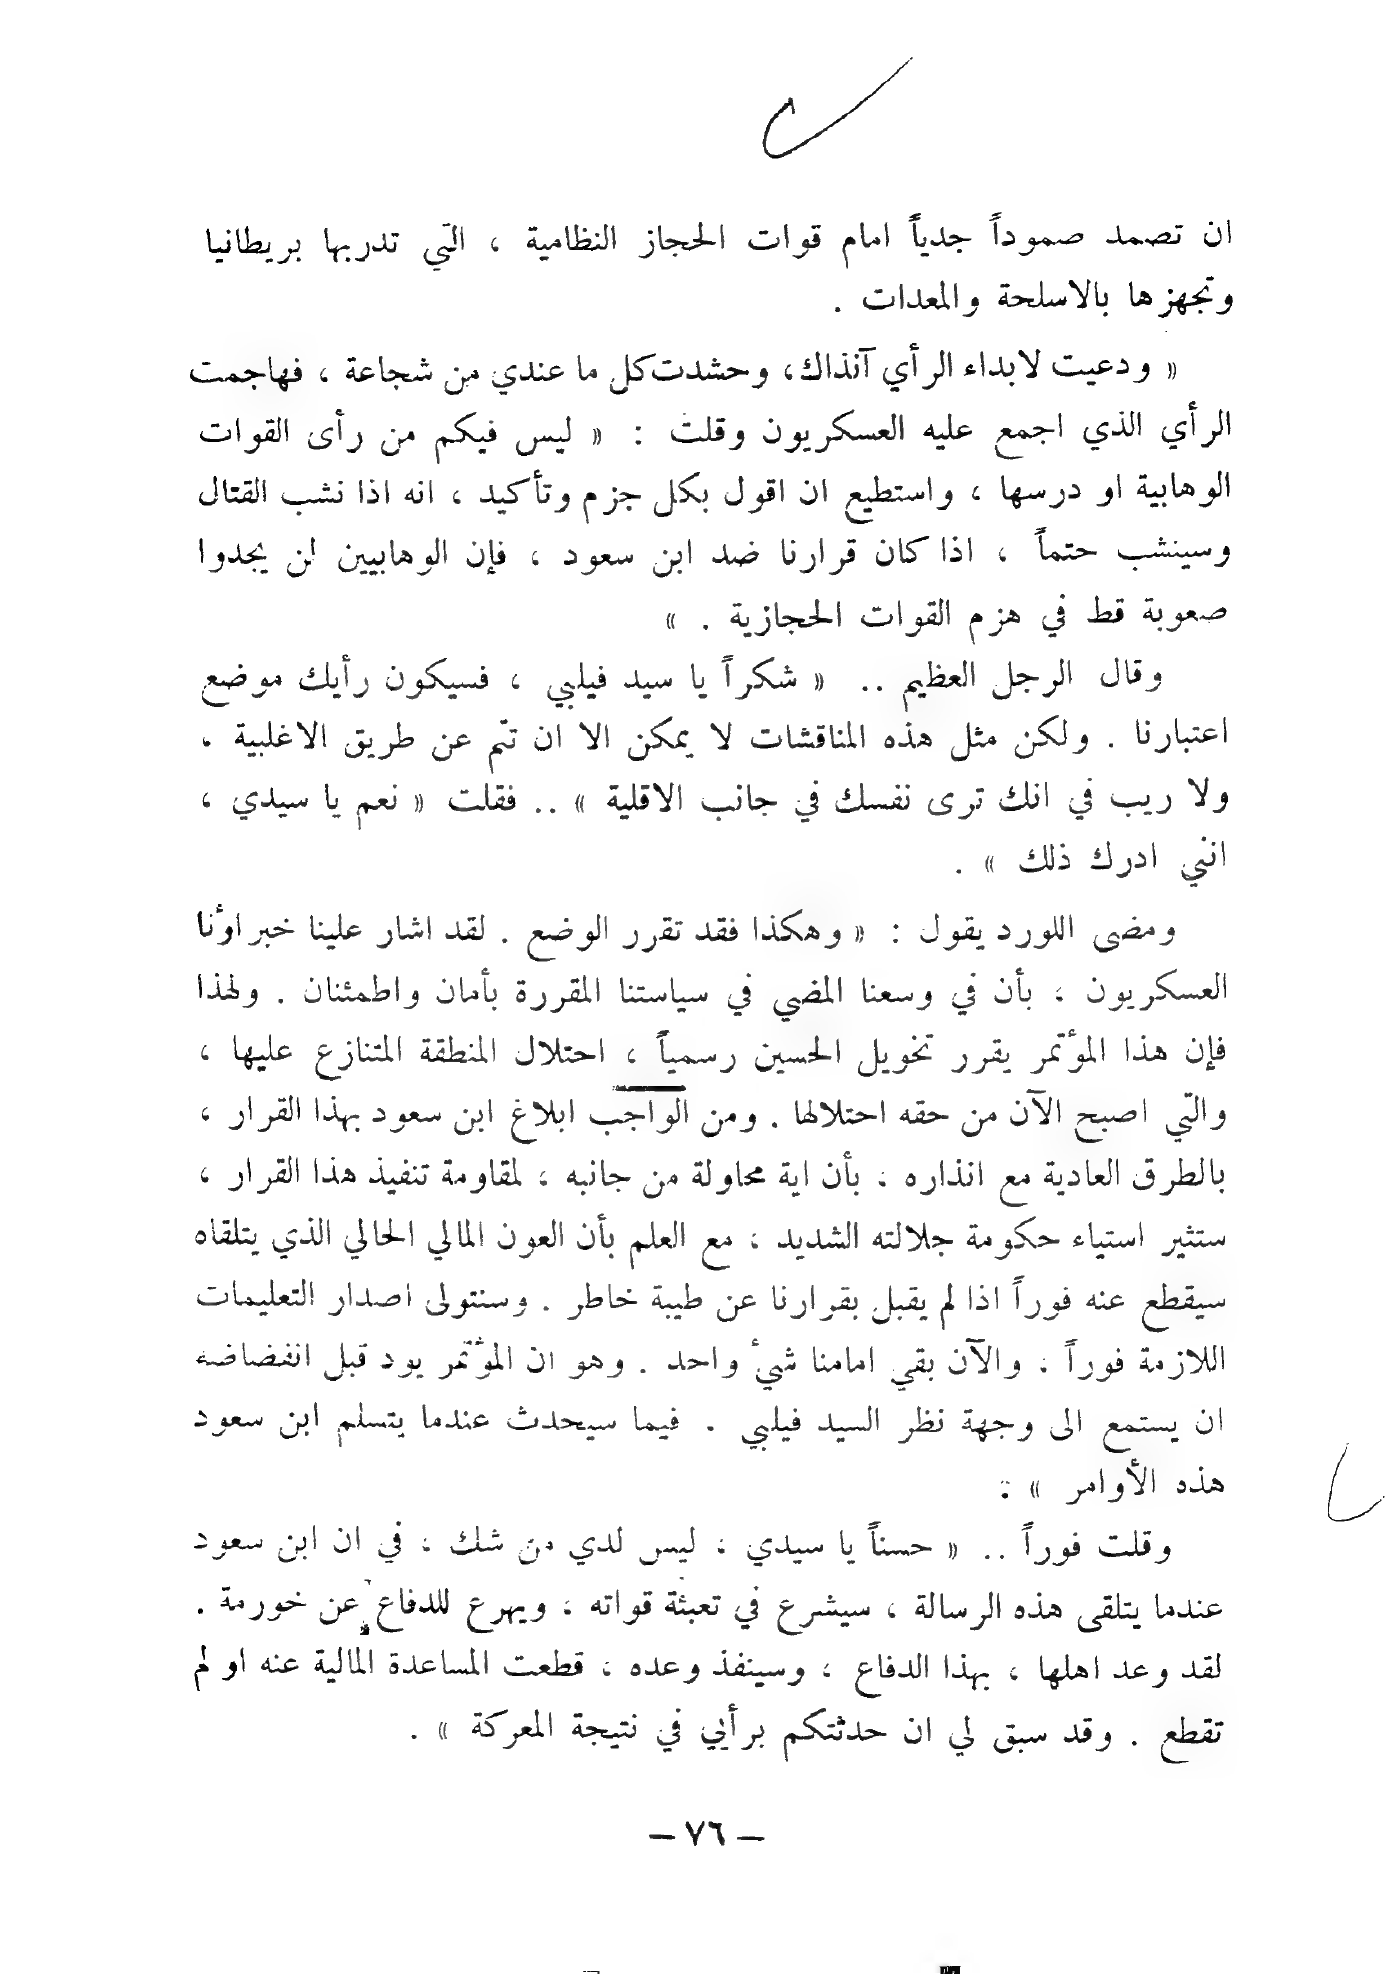 ان تصمد صموداً جدياً امام قوات الحجاز النظامية ، التي تدربها بريطانيا
وتجهزها بالاسلحة والمعدات .
« ودعيت لابداء الرأي آنذاك، وحشدت كل ما عندي من شجاعة ، فهاجمت
الرأي الذي اجمع عليه العسكريون وقلت : « ليس فيكم من رأى القوات
الوهابية او درسها ، واستطيع ان اقول بكل جزم وتأكيد ، انه اذا نشب القتال
وسينشب حتماً ، اذا كان قرارنا ضد ابن سعود ، فإن الوهابيين لن يجدوا
صعوبة قط في هزم القوات الحجازية . »
وقال الرجل العظيم .. « شكراً يا سيد فيلبي ، فسيكون رأيك موضع
اعتبارنا . ولكن مثل هذه المناقشات لا يمكن الا ان تتم عن طريق الاغلبية ،
ولا ريب في انك ترى نفسك في جانب الاقلية » .. فقلت « نعم يا سيدي ،
انني ادرك ذلك » .
ومضى اللورد يقول : « وهكذا فقد تقرر الوضع . لقد اشار علينا خبراؤنا
العسكريون ، بأن في وسعنا المضي في سياستنا المقررة بأمان واطمئنان . ولهذا
فإن هذا المؤتمر يقرر تخويل الحسين رسمياً ، احتلال المنطقة المتنازع عليها ،
والتي اصبح الآن من حقه احتلالها . ومن الواجب ابلاغ ابن سعود بهذا القرار ،
بالطرق العادية مع انذاره ، بأن اية محاولة من جانبه ، لمقاومة تنفيذ هذا القرار ،
ستثير استياء حكومة جلالته الشديد ، مع العلم بأن العون المالي الحالي الذي يتلقاه
سيقطع عنه فوراً اذا لم يقبل بقرارنا عن طيبة خاطر . وسنتولى اصدار التعليمات
اللازمة فوراً ، والآن بقي امامنا شيء واحد . وهو ان المؤتمر يود قبل انفضاضه
ان يستمع الى وجهة نظر السيد فيلبي . فيما سيحدث عندما يتسلم ابن سعود
هذه الأوامر » :
وقلت فوراً .. « حسناً يا سيدي ، ليس لدي من شك ، في ان ابن سعود
عندما يتلقى هذه الرسالة ، سيشرع في تعبئة قواته ، ويهرع للدفاع عن خورمة .
لقد وعد اهلها ، بهذا الدفاع ، وسينفذ وعده ، قطعت المساعدة المالية عنه او لم
تقطع . وقد سبق لي ان حدثتكم برأيي في نتيجة المعركة » .
– ٧٦ –